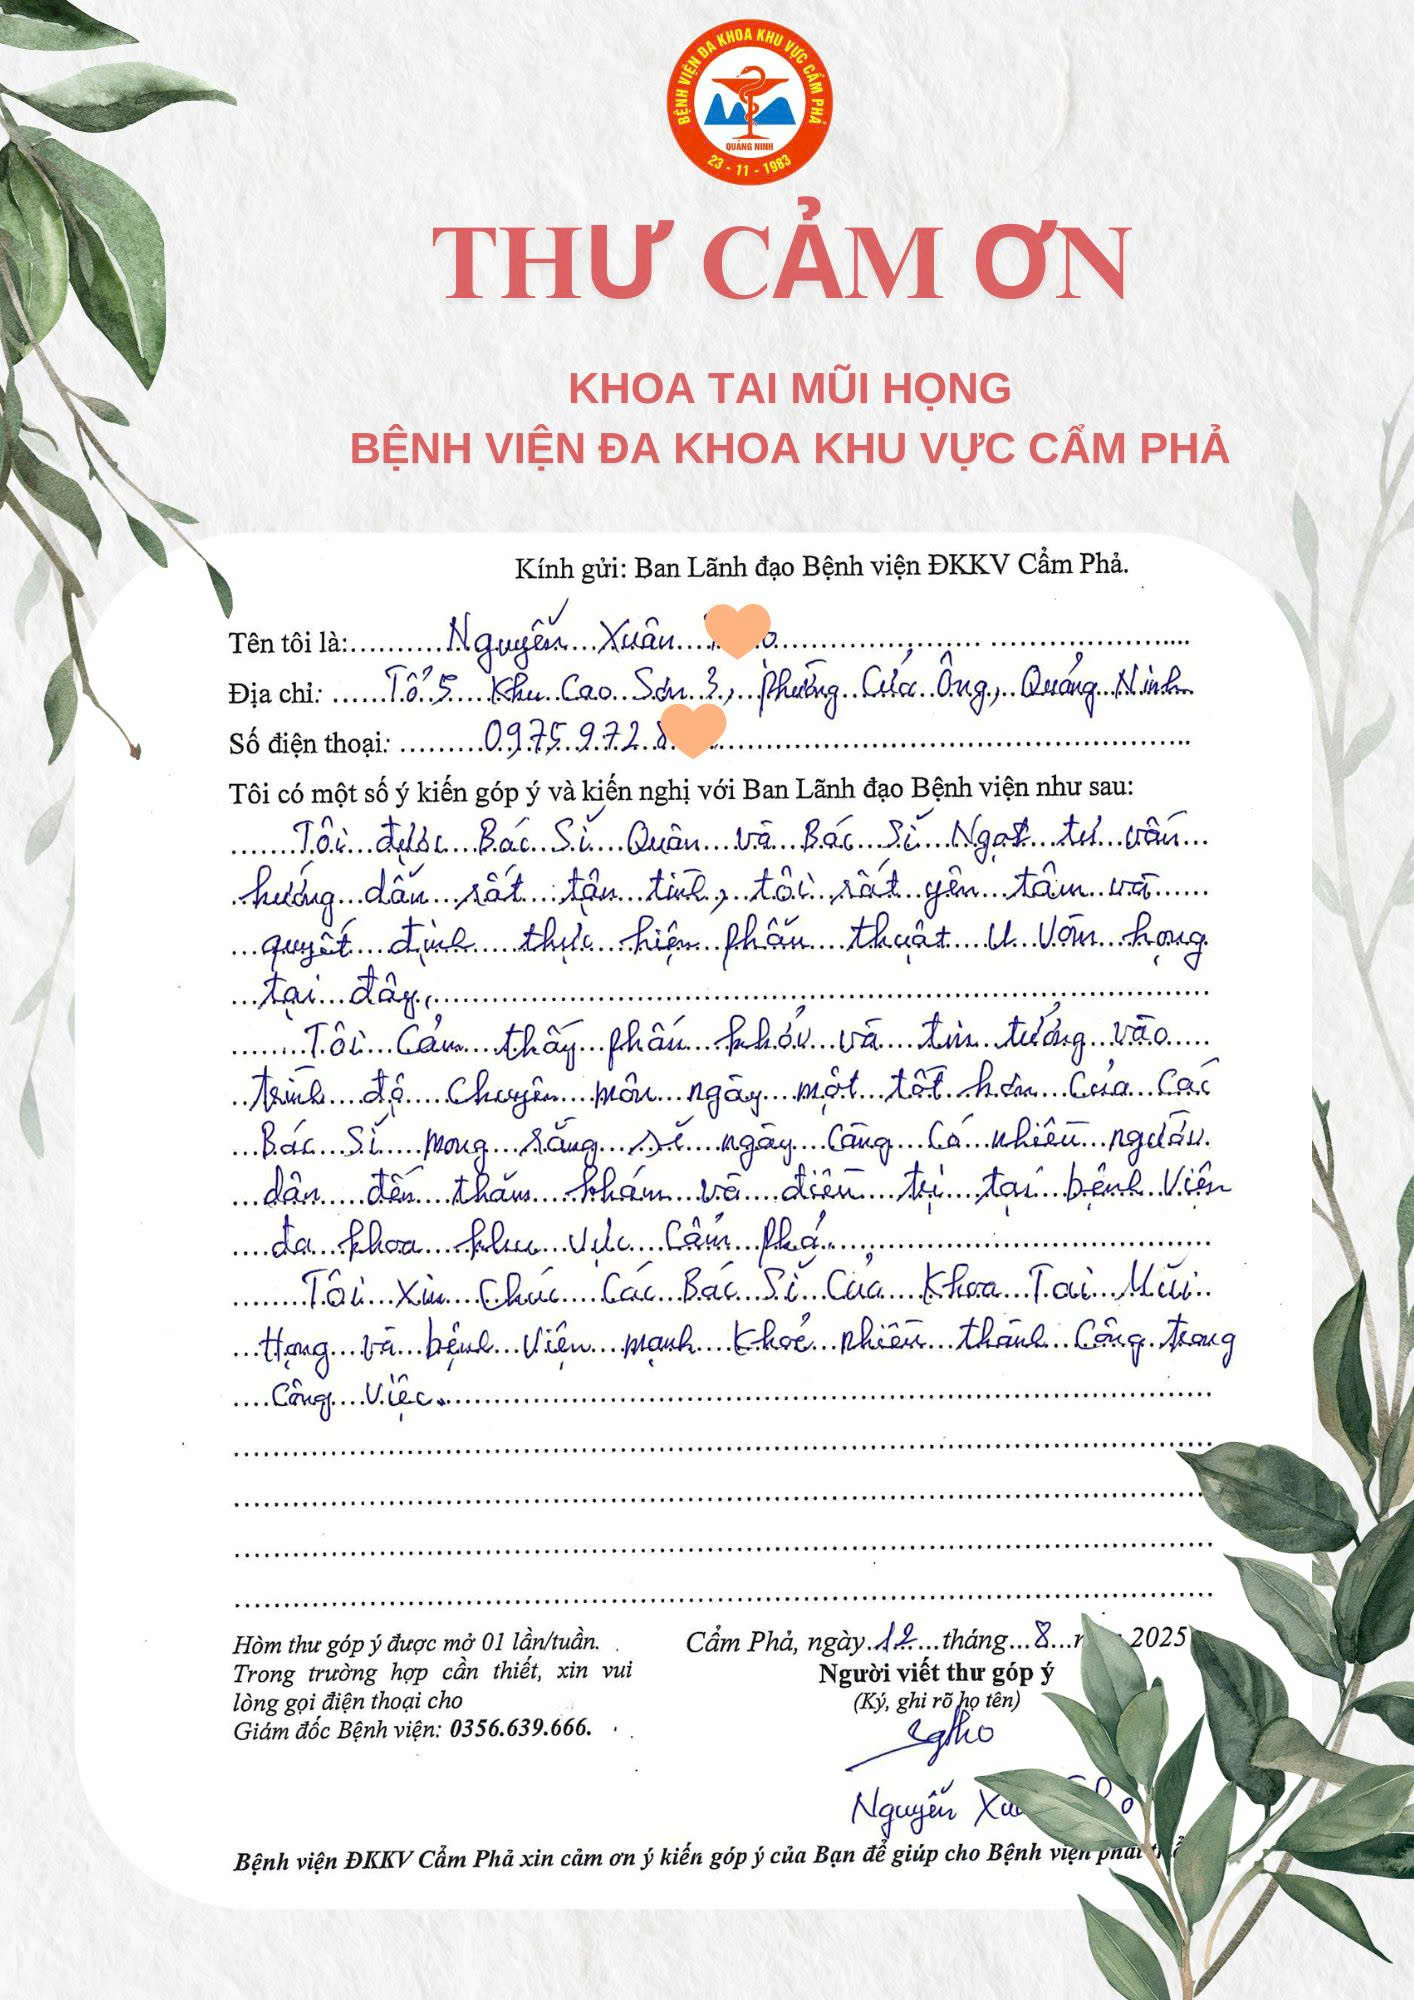 BỆNH VIỆN ĐA KHOA KHU VỰC CẨM PHẢ
QUẢNG NINH
23 - 11 - 1983
THƯ CẢM ƠN
KHOA TAI MŨI HỌNG
BỆNH VIỆN ĐA KHOA KHU VỰC CẨM PHẢ
Kính gửi: Ban Lãnh đạo Bệnh viện ĐKKV Cẩm Phả.
Tên tôi là: Nguyễn Xuân
Địa chỉ: Tổ 5 Khu Cao Sơn 3, phường Cửa Ông, Quảng Ninh
Số điện thoại: 0975.972.8
Tôi có một số ý kiến góp ý và kiến nghị với Ban Lãnh đạo Bệnh viện như sau:
Tôi được Bác Sĩ Quân và Bác Sĩ Ngạt tư vấn
hướng dẫn rất tận tình, tôi rất yên tâm và
quyết định thực hiện phẫu thuật U Vòm họng
tại đây,
Tôi Cảm thấy phấn khởi và tin tưởng vào
trình độ Chuyên môn ngày một tốt hơn Của Các
Bác Sĩ mong rằng sẽ ngày Càng Có nhiều người
dân đến thăm khám và điều trị tại bệnh Viện
đa khoa khu vực Cẩm phả.
Tôi Xin Chúc Các Bác Sĩ Của Khoa Tai Mũi
Họng và bệnh Viện mạnh Khoẻ nhiều thành Công trong
Công Việc.
Hòm thư góp ý được mở 01 lần/tuần.
Trong trường hợp cần thiết, xin vui
lòng gọi điện thoại cho
Giám đốc Bệnh viện: 0356.639.666.
Cẩm Phả, ngày 12 tháng 8 2025
Người viết thư góp ý
(Ký, ghi rõ họ tên)
Nguyễn
Bệnh viện ĐKKV Cẩm Phả xin cảm ơn ý kiến góp ý của Bạn để giúp cho Bệnh viện phát